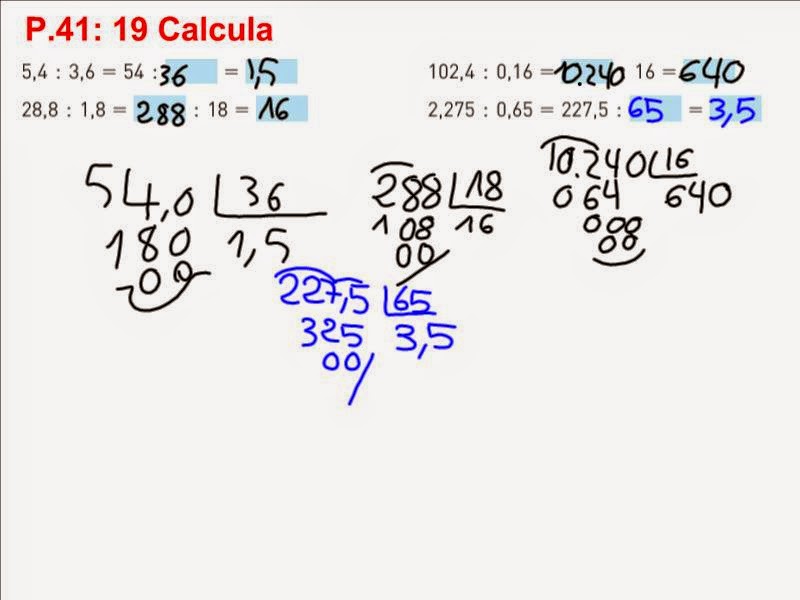 P.41: 19 Calcula
5,4 : 3,6 = 54 : 36 = 1,5
28,8 : 1,8 = 288 : 18 = 16
102,4 : 0,16 = 10.240 16 = 640
2,275 : 0,65 = 227,5 : 65 = 3,5
54,0 36
180 1,5
00
288 18
108 16
00
10.240 16
064 640
000
00
227,5 65
325 3,5
00